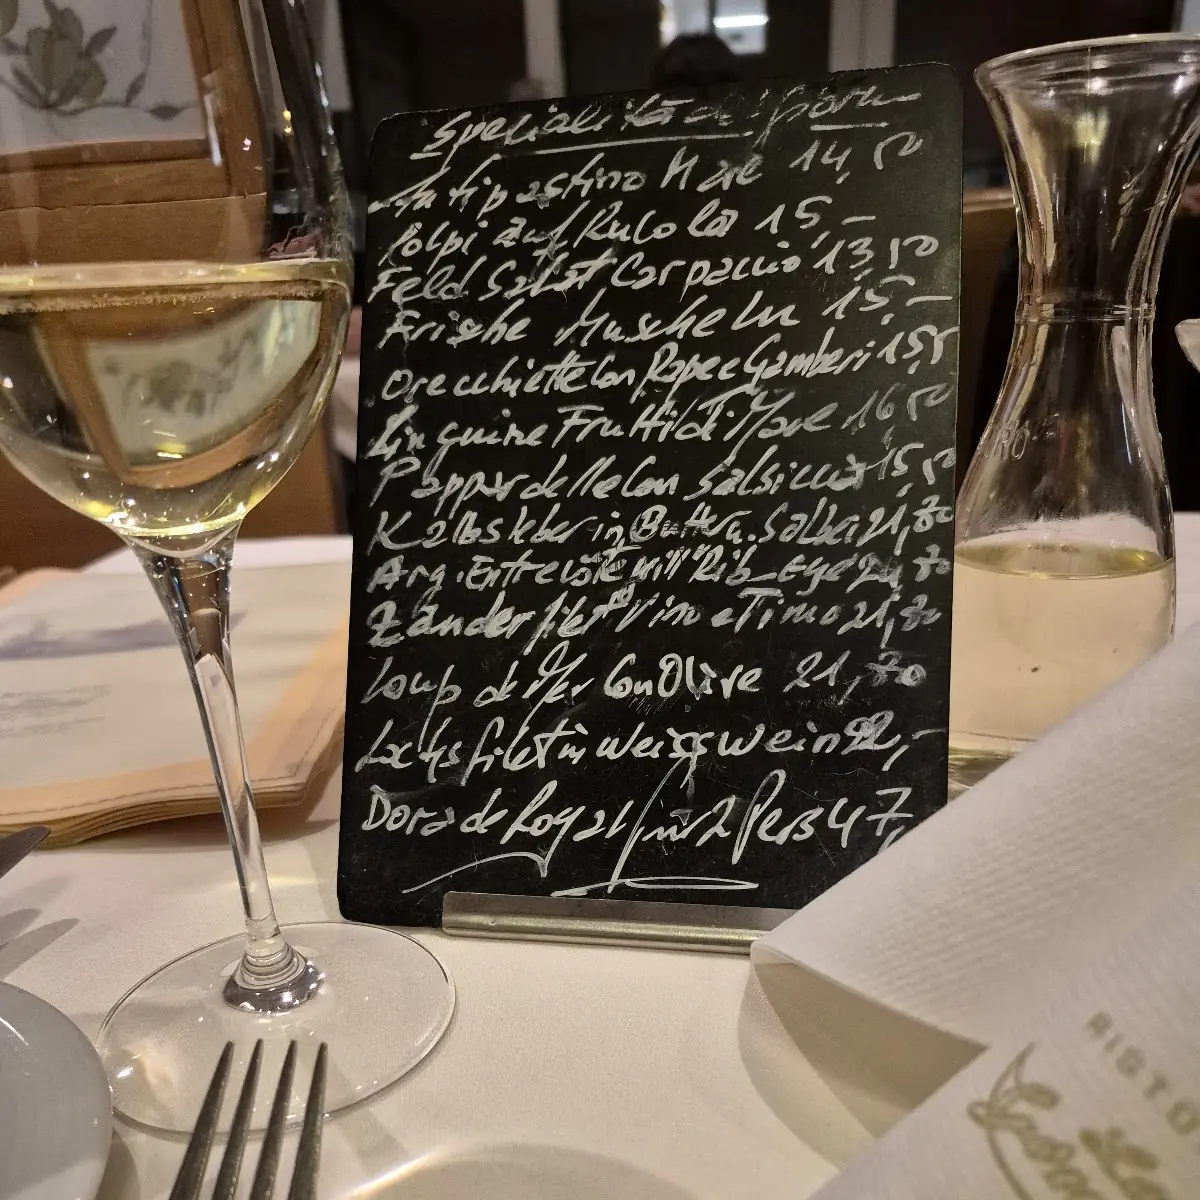 Spezialità del giorno
Antipastino Mare 14,50
Polpi auf Rucola 15,-
Feld Salat Carpaccio 13,50
Frische Muscheln 15,-
Orecchiette Con Rape e Gamberi 15,5
Linguine Frutti di Mare 16,50
Pappardelle Con Salsiccia 15,50
Kalbsleber in Butter u. Salbei 21,80
Arg. Entrecôte "Rib-Eye"
Zanderfilet Vino e Timo 21,80
Loup de Mer Con Olive 21,80
Lachsfilet in Weisswein 22,-
Dorade Royal für 2 Pers 47,
RISTO
La